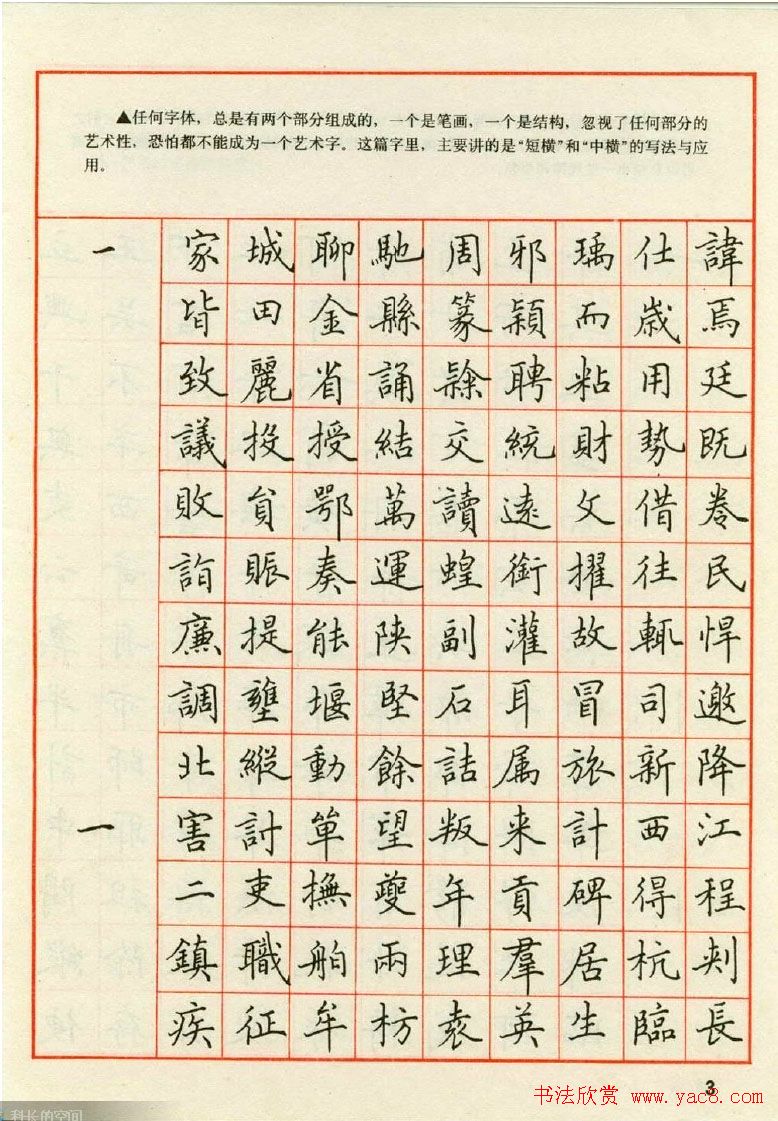 ▲任何字体，总是有两个部分组成的，一个是笔画，一个是结构，忽视了任何部分的
艺术性，恐怕都不能成为一个艺术字。这篇字里，主要讲的是“短横”和“中横”的写法与应
用。
一 家城聊馳周邪瑀仕諱
皆田金縣篆穎而歲焉
致麗省誦隸聘粘用廷
議投授結交統財勢既
敗貟鄂萬讀遠文借卷
詣賑奏運蝗銜擢往民
廉提能陝副灌故輒悍
調壅堰堅石耳冒司邀
北縱動餘詰属旅新降
一 害討單望叛来計西江
二吏撫夔年貢碑得程
鎮職舶兩理羣居杭刺
疾征牟枋袁英生臨長
3
书法欣赏 www.yac8.com
科长的空间